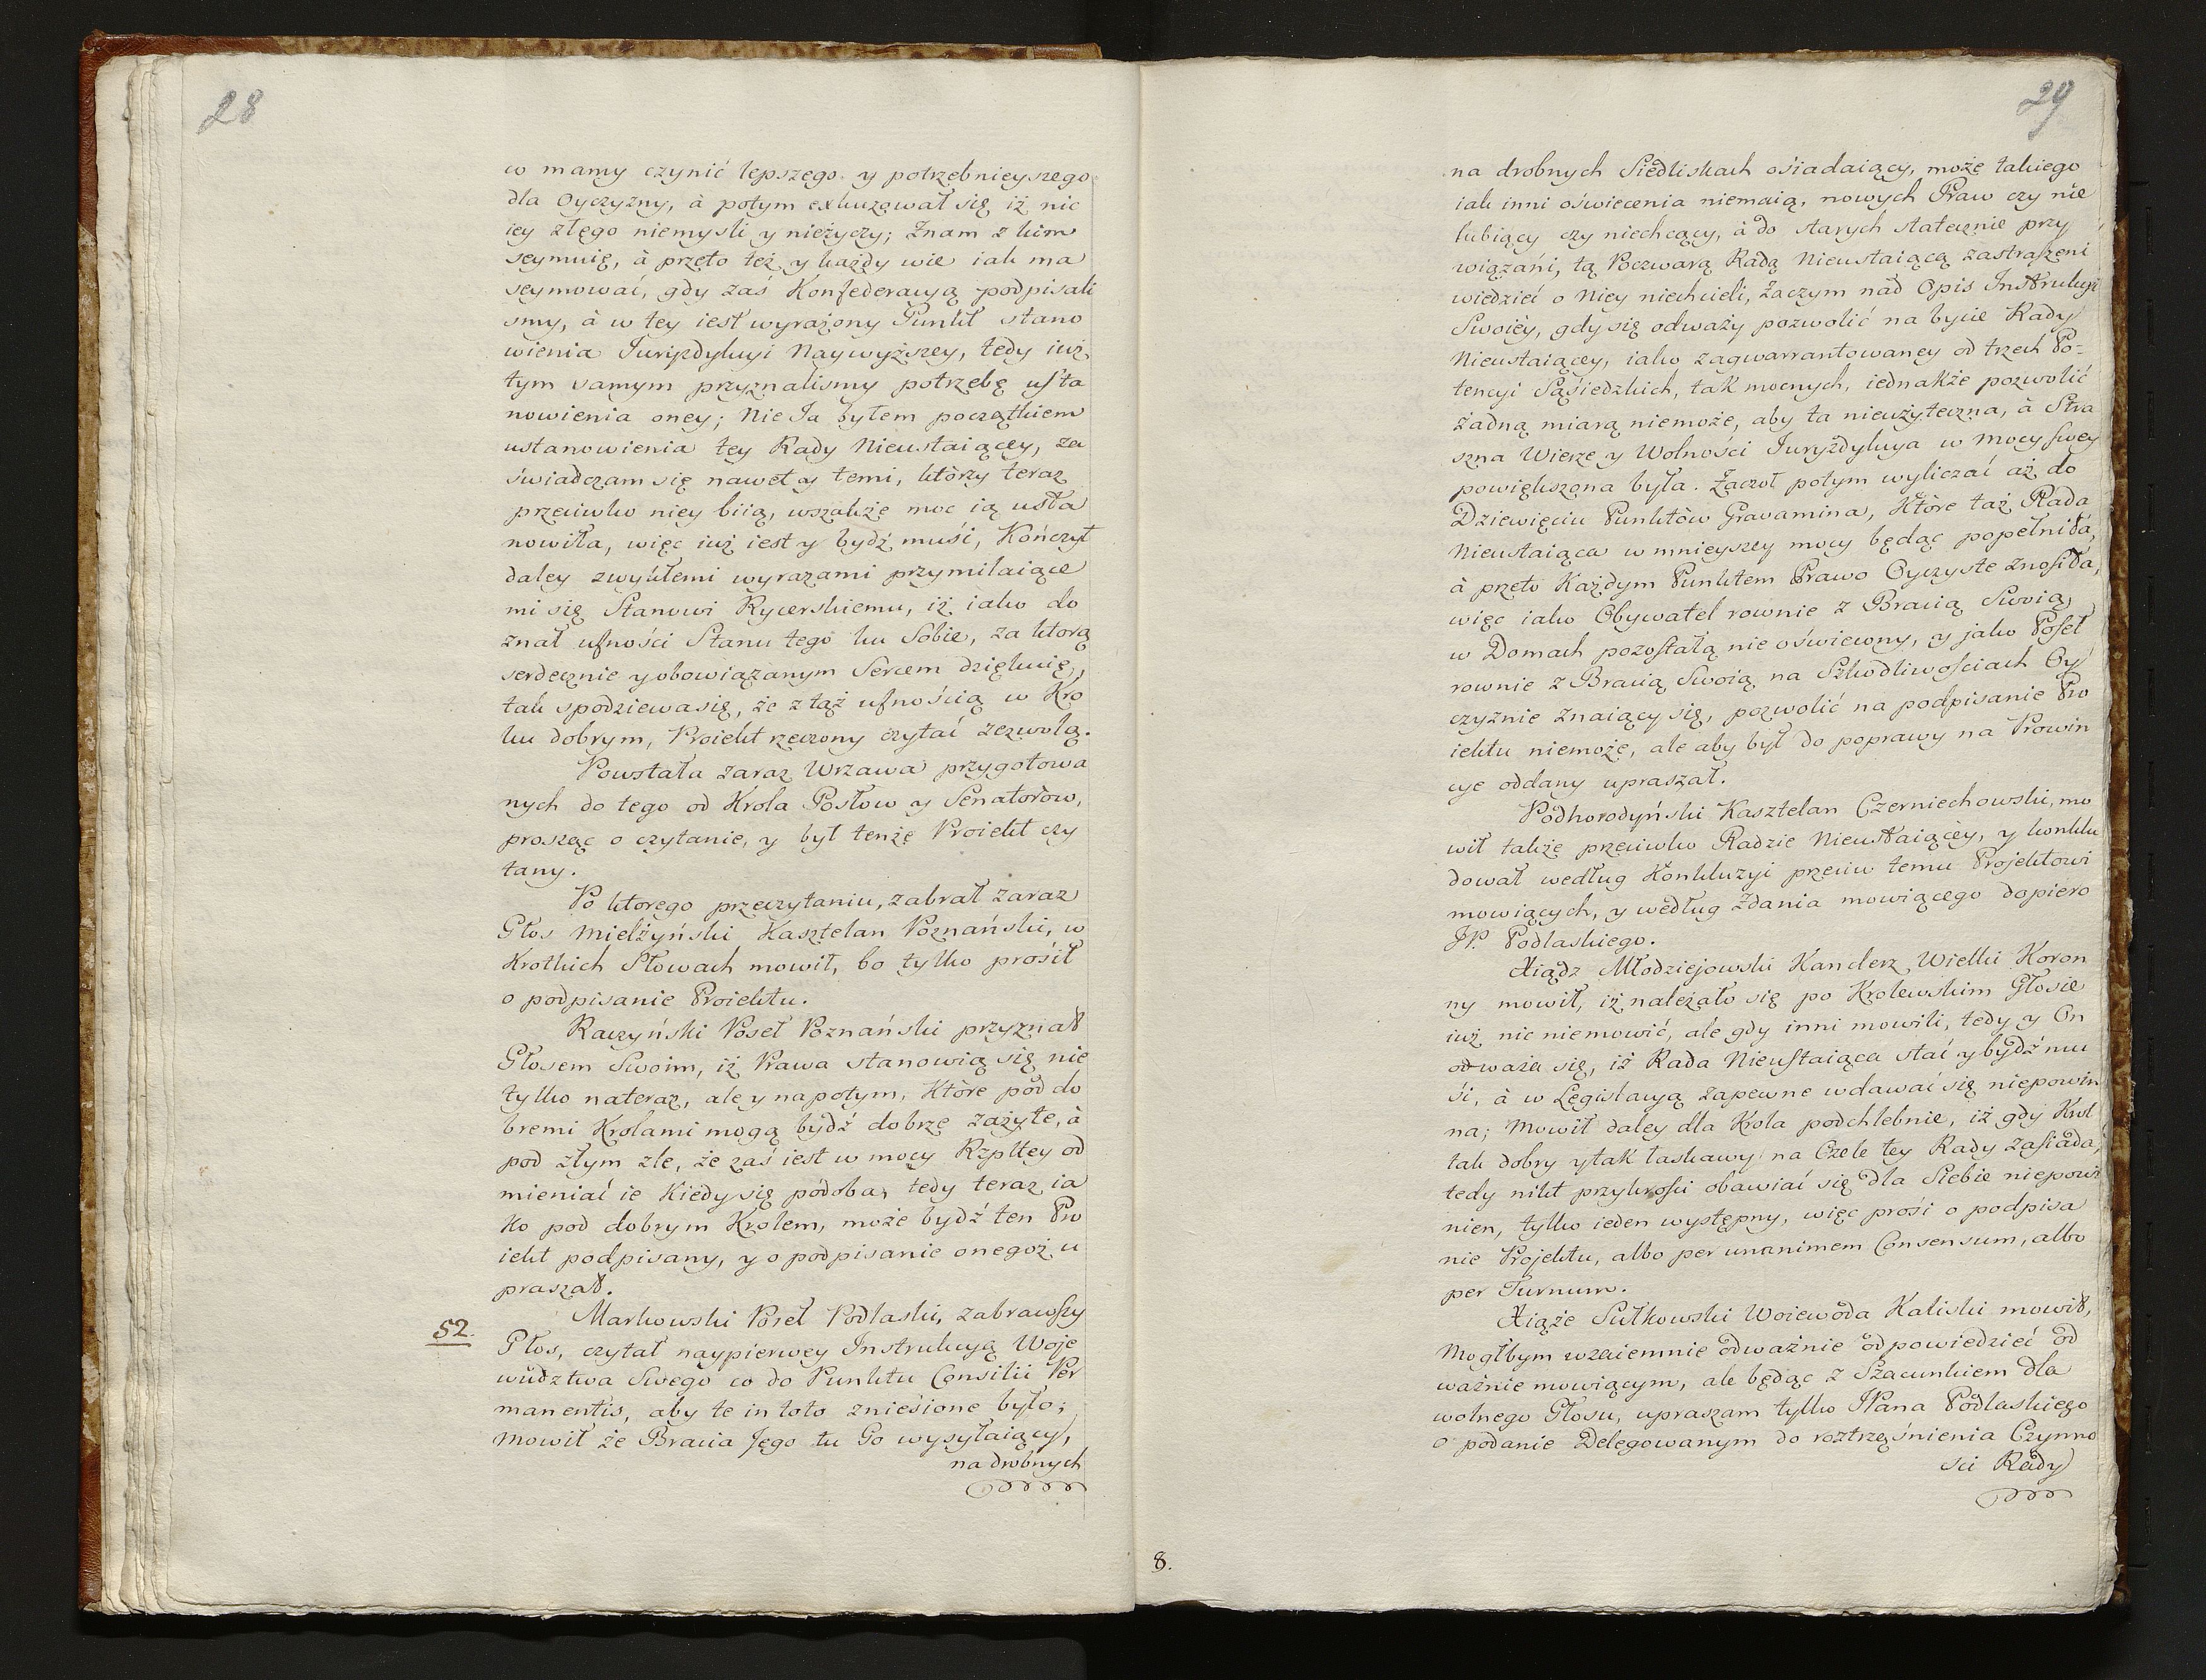 28
co mamy czynić lepszego y potrzebnieyszego
dla Oyczyzny, à potym exkuzował się iż nic
iey złego niemysli y nieżyczy; Znam z kim
seymuię, à przeto też y każdy wie iak ma
seymować, gdy zas Konfederacyą podpisali
smy, à w tey iest wyrażony Punkt stano
wienia Juryzdykcyi Naywyższey, tedy iuż
tym samym przyznalismy potrzebę usta
nowienia oney; Nie Ja byłem początkiem
ustanowienia tey Rady Nieustaiącey, za
świadczam się nawet y temi, którzy teraz
przeciwko niey biią, wszakże moc ią usta
nowiła, więc iuż iest y bydź muśi, Kończył
daley zwykłemi wyrazami przymilaiące
mi się Stanowi Rycerskiemu, iż iako do
znał ufności Stanu tego ku Sobie, za ktorą
serdecznie y obowiązanym Sercem dziękuię,
tak spodziewa się, że z tąż ufnością w Kró
lu dobrym, Proiekt rzeczony czytać zezwolą.
Powstała zaraz Wrzawa przygotowa
nych do tego od Krola Posłow y Senatorow,
prosząc o czytanie, y był tenże Proiekt czy
tany.
Po ktorego przeczytaniu, zabrał zaraz
Głos Mielżyński Kasztelan Poznański, w
Krotkich Słowach mowił, bo tylko prośił
o podpisanie Proiektu.
Raczyński Poseł Poznański przyznał
Głosem Swoim, iż Prawa stanowią się nie
tylko nateraz, ale y napotym, Które pod do
bremi Krolami mogą bydź dobrze zażyte, à
pod złym zle, że zaś iest w mocy Rzpltey od
mieniać ie Kiedy się podoba, tedy teraz ia
ko pod dobrym Krolem, może bydź ten Pro
iekt podpisany, y o podpisanie onegoż u
praszał.
52. Markowski Poseł Podlaski, zabrawszy
Głos, czytał naypierwey Instrukcyą Woje
wudztwa Swego co do Punktu Consilii Per
manentis, aby te in toto znieśione było;
mowił że Bracia Jego tu Go wysyłaiący,
na drobnych
29
na drobnych Siedliskach ośiadaiący, może takiego
iak inni oświecenia niemaią, nowych Praw czy nie
lubiący czy niechcący, à do starych statecznie przy
wiązani, tą Poczwarą Radą Nieustaiącą zastraszeni
wiedzieć o Niey niechcieli, Zaczym nad Opis Instrukcyi
Swoiey, gdy się odważy pozwolić na bycie Rady
Nieustaiącey, iako zagwarrantowaney od trzech Po=
tencyi Sąśiedzkich, tak mocnych, iednakże pozwolić
żadną miarą niemoże, aby ta nieużyteczna, à Stra
szna Wierze y Wolności Juryzdykcya w mocy swey
powiększona była. Zaczoł potym wyliczać aż do
Dziewięciu Punktòw Gravamina, Które taż Rada
Nieustaiąca w mnieyszey mocy będąc popełniła,
à przeto Każdym Punktem Prawo Oyczyste znosiła,
więc iako Obywatel rownie z Bracią Swoią
w Domach pozostałą nie oświecony, y jako Poseł
rownie z Bracią Swoią na Szkodliwosciach Oy
czyznie znaiący się, pozwolić na podpisanie Pro
iektu niemoże, ale aby był do poprawy na Prowin
cye oddany upraszał.
Podhorodyński Kasztelan Czerniechowski, mo
wił także przeciwko Radzie Nieustaiącey, y konklu
dował według Konkluzyi przeciw temu Projektowi
mowiących, y według Zdania mowiącego dopiero
JP. Podlaskiego.
Xiądz Młodziejowski Kanclerz Wielki Koron
ny mowił, iż należało się po Krolewskim Głosie
iuż nic niemowić, ale gdy inni mowili, tedy y On
odważa się, iż Rada Nieustaiąca stać y bydź mu
śi, à w Legislacyą zapewne wdawać się niepowin
na; Mowił daley dla Krola podchlebnie, iż gdy Krol
tak dobry y tak łaskawy na Czele tey Rady zasiada,
tedy nikt przykrości obawiać się dla Siebie niepowi
nien, tylko ieden występny, więc prośi o podpisa
nie Projektu, albo per unanimem Consensum, albo
per Turnum.
Xiąże Sułkowski Woiewoda Kaliski mowił,
Mogłbym wzaiemnie odważnie odpowiedzieć od
ważnie mowiącym, ale będąc z Szacunkiem dla
wolnego Głosu, upraszam tylko JPana Podlaskiego
o podanie Delegowanym do roztrząśnienia Czynno
sci Rady
8.